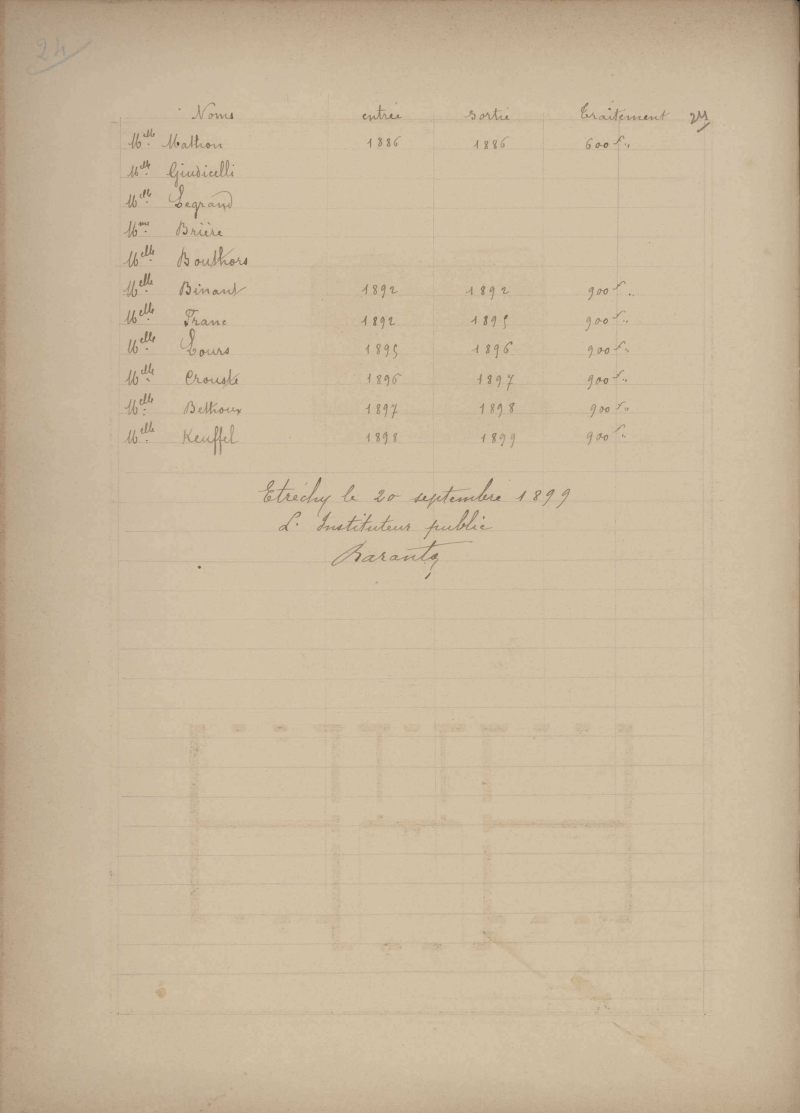 24
Noms entrée sortie traitement 24
Melle Mathon 1886 1886 600 f. "
Melle Giudicelli
Melle Legrand
Mme Brière
Melle Bouthors
Melle Binant 1892 1892 900 f. "
Melle Franc 1892 1895 900 f. "
Melle Lours 1895 1896 900 f. "
Melle Crousté 1896 1897 900 f. "
Melle Bethoux 1897 1898 900 f. "
Melle Keuffel 1898 1899 900 f. "
Etréchy le 20 septembre 1899
L'Instituteur public